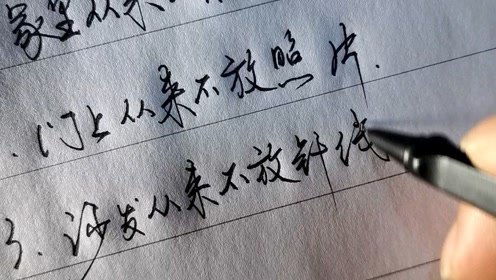 家里从来
.门上从来不放照片.
3.沙发从来不放针线